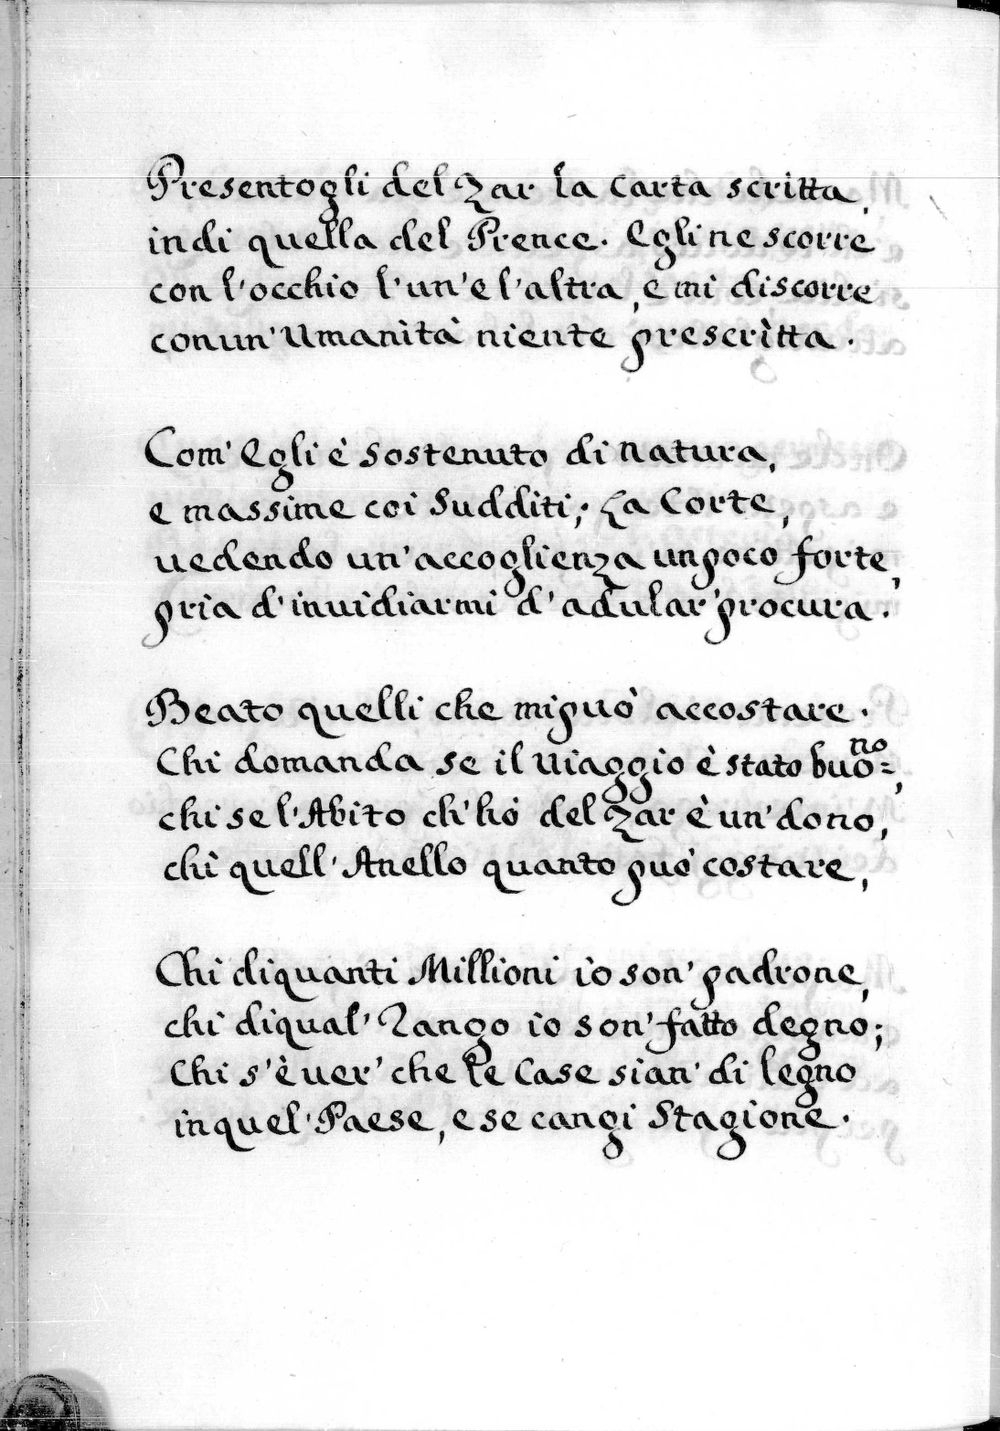 Presentogli del Zar la Carta scritta,
indi quella del Prence. Egli ne scorre
con l'occhio l'un'e l'altra, e mi discorre
con un'Umanità niente prescritta.
Com'Egli è sostenuto di natura,
e massime coi Sudditi; La Corte,
vedendo un'accoglienza un poco forte,
pria d'invidiarmi d'adular'procura.
Beato quelli che mi può accostare.
Chi domanda se il Viaggio è stato buo=no,
chi se l'Abito ch'hò del Zar è un'dono,
chi quell'Anello quanto può costare,
Chi di quanti Millioni io son'padrone,
chi di qual'Rango io son'fatto degno;
Chi s'è ver'che le Case sian'di legno
in quel'Paese, e se cangi Stagione.